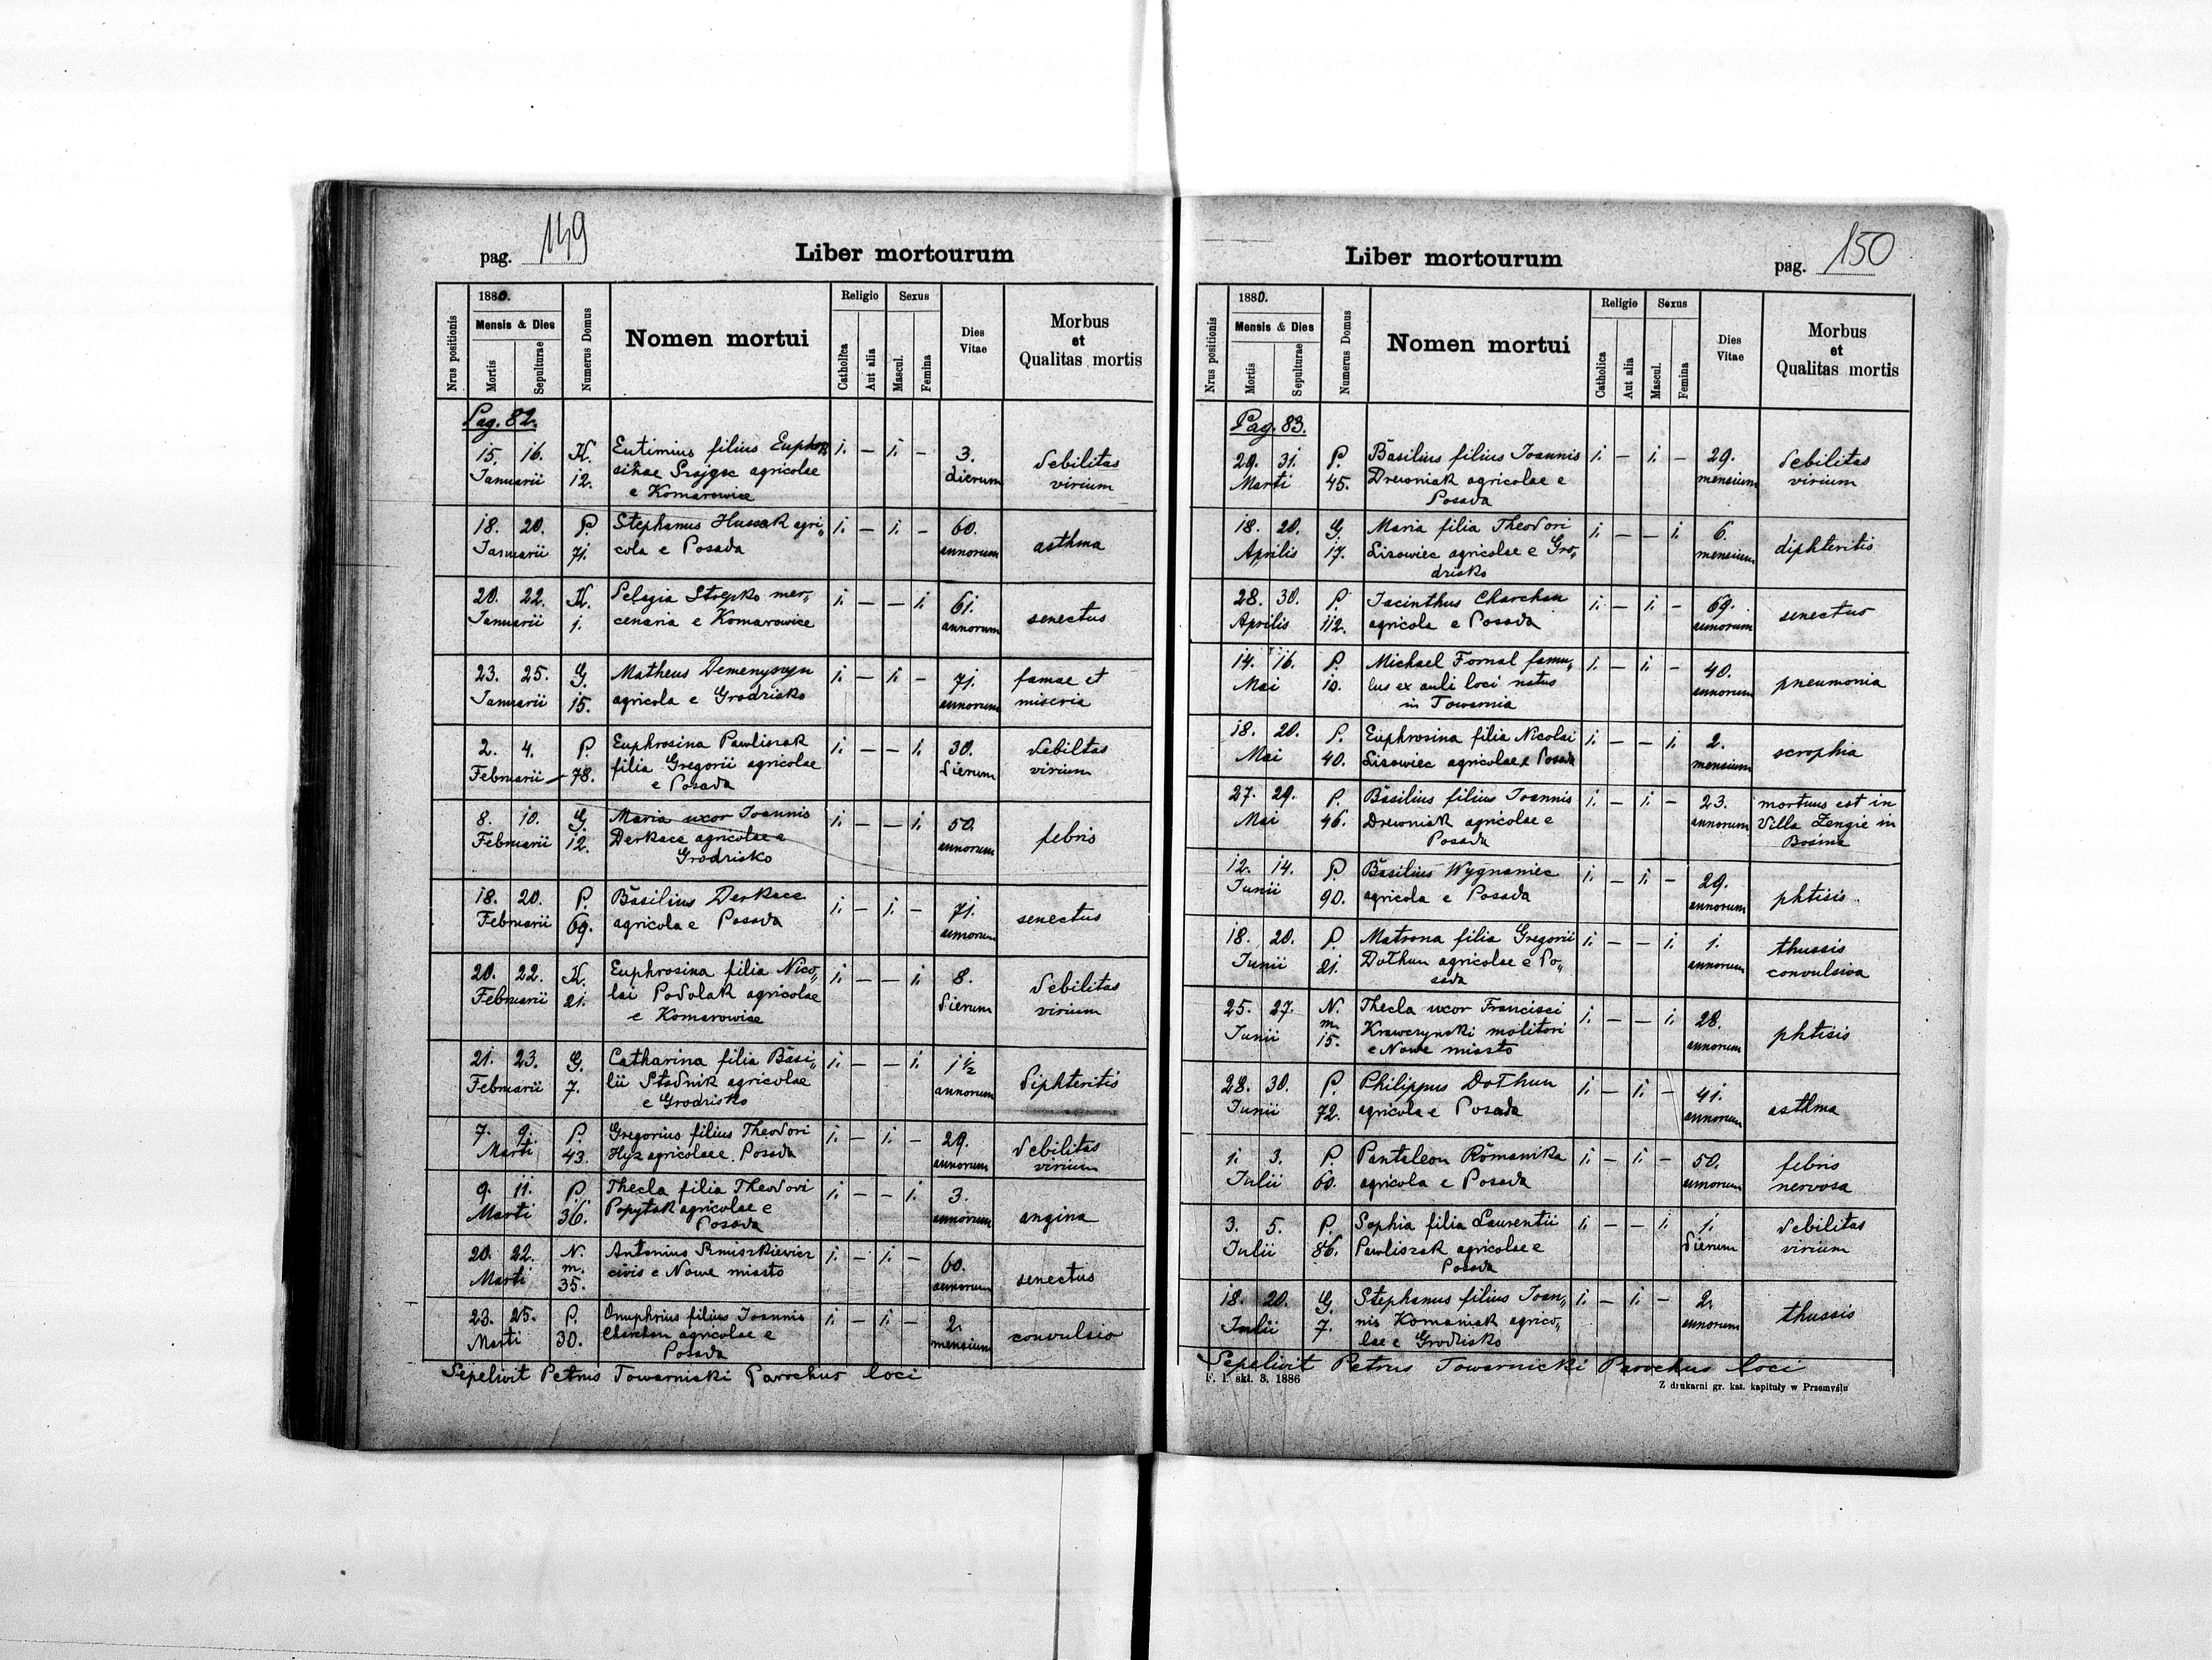 pag. 149
Liber mortourum
Nrus positionis
1880.
Mensis & Dies
Mortis
Sepulturae
Numerus Domus
Nomen mortui
Religio
Catholica
Aut alia
Sexus
Mascul.
Femina
Dies Vitae
Morbus
et
Qualitas mortis
Pag. 82.
15. 16. K. Eutimius filius Euphro„ 1. — 1. — 3. debilitas
Januarii 12. sinae agricolae dierum virium
e Komarowice
18. 20. P. Stephanus Hussak agri„ 1. — 1. — 60. asthma
Januarii 71. cola e Posada annorum
20. 22. K. Pelagia Strepko mer„ 1. — — 1. 61. senectus
Januarii 1. cenaria e Komarowice annorum
23. 25. G. Matheus 1. — 1. — 71. famae et
Januarii 15. agricola e Grodzisko annorum miseria
2. 4. P. Euphrosina Pawliszak 1. — — 1. 30. debiltas
Februarii 78. filia Gregorii agricolae dierum virium
e Posada
8. 10. G. Maria uxor Joannis 1. — — 1. 50. febris
Februarii 12. Derkacz agricolae e annorum
Grodzisko
18. 20. P. Basilius Derkacz 1. — 1. — 71. senectus
Februarii 69. agricola e Posada annorum
20. 22. K. Euphrosina filia Nico„ 1. — — 1. 8. debilitas
Februarii 21. lai Podolak agricolae dierum virium
e Komarowice
21. 23. G. Catharina filia Basi„ 1. — — 1. 1 ½ diphteritis
Februarii 7. lii Stadnik agricolae annorum
e Grodzisko
7. 9. P. Gregorius filius Theodori 1. — 1. — 29. debilitas
Marti 43. Hyz agricolae e Posada annorum virium
9. 11. P. Thecla filia Theodori 1. — — 1. 3. angina
Marti 36. Popytak agricolae e annorum
Posada
20. 22. N. Antonius 1. — 1. — 60. senectus
Marti m. civis e Nowe miasto annorum
35.
23. 25. P. Onuphrius filius Joannis 1. — 1. — 2. convulsio
Marti 30. Charchan agricolae e mensium
Posada
Sepelivit Petrus Towarnicki Parochus loci
Liber mortourum
pag. 150
Nrus positionis
1880.
Mensis & Dies
Mortis
Sepulturae
Numerus Domus
Nomen mortui
Religio
Catholica
Aut alia
Sexus
Mascul.
Femina
Dies Vitae
Morbus
et
Qualitas mortis
Pag. 83.
29. 31. P. Basilius filius Joannis 1. — 1. — 29. debilitas
Marti 45. Drewniak agricolae e mensium virium
Posada
18. 20. G. Maria filia Theodori 1. — — 1. 6. diphteritis
Aprilis 17. Lisowiec agricolae e Gro„ mensium
dzisko
28. 30. P. Jacinthus Charchan 1. — 1. — 69. senectus
Aprilis 112. agricola e Posada annorum
14. 16. P. Michael Fornal famu„ 1. — 1. — 40. pneumonia
Mai 10. lus ex auli loci natus annorum
in Towarnia
18. 20. P. Euphrosina filia Nicolai 1. — — 1. 2. scrophia
Mai 40. Lisowiec agricolae e Posada mensium
27. 29. P. Basilius filius Joannis 1. — 1. — 23. mortuus est in
Mai 46. Drewniak agricolae e annorum Villa Zengie in
Posada Bosina
12. 14. P. Basilius Wygnaniec 1. — 1. — 29. phtisis
Junii 90. agricola e Posada annorum
18. 20. P. Matrona filia Gregorii 1. — — 1. 1. thussis
Junii 21. Dothun agricolae e Po„ annorum convulsiva
sada
25. 27. N. Thecla uxor Francisci 1. — — 1. 28. phtisis
Junii m. Krawczynski molitori annorum
15. e Nowe miasto
28. 30. P. Philippus Dothun 1. — 1. — 41. asthma
Junii 72. agricola e Posada annorum
1. 3. P. Pantaleon Romanika 1. — 1. — 50. febris
Julii 60. agricola e Posada annorum nervosa
3. 5. P. Sophia filia Laurentii 1. — — 1. 1. debilitas
Julii 86. Pawliszak agricolae e dierum virium
Posada
18. 20. G. Stephanus filius Joan„ 1. — 1. — 2. thussis
Julii 7. nis Komaniak agrico„ annorum
lae e Grodzisko
Sepelivit Petrus Towarnicki Parochus loci
F. 1. skł. 3. 1886
Z drukarni gr. kat. kapituły w Przemyślu